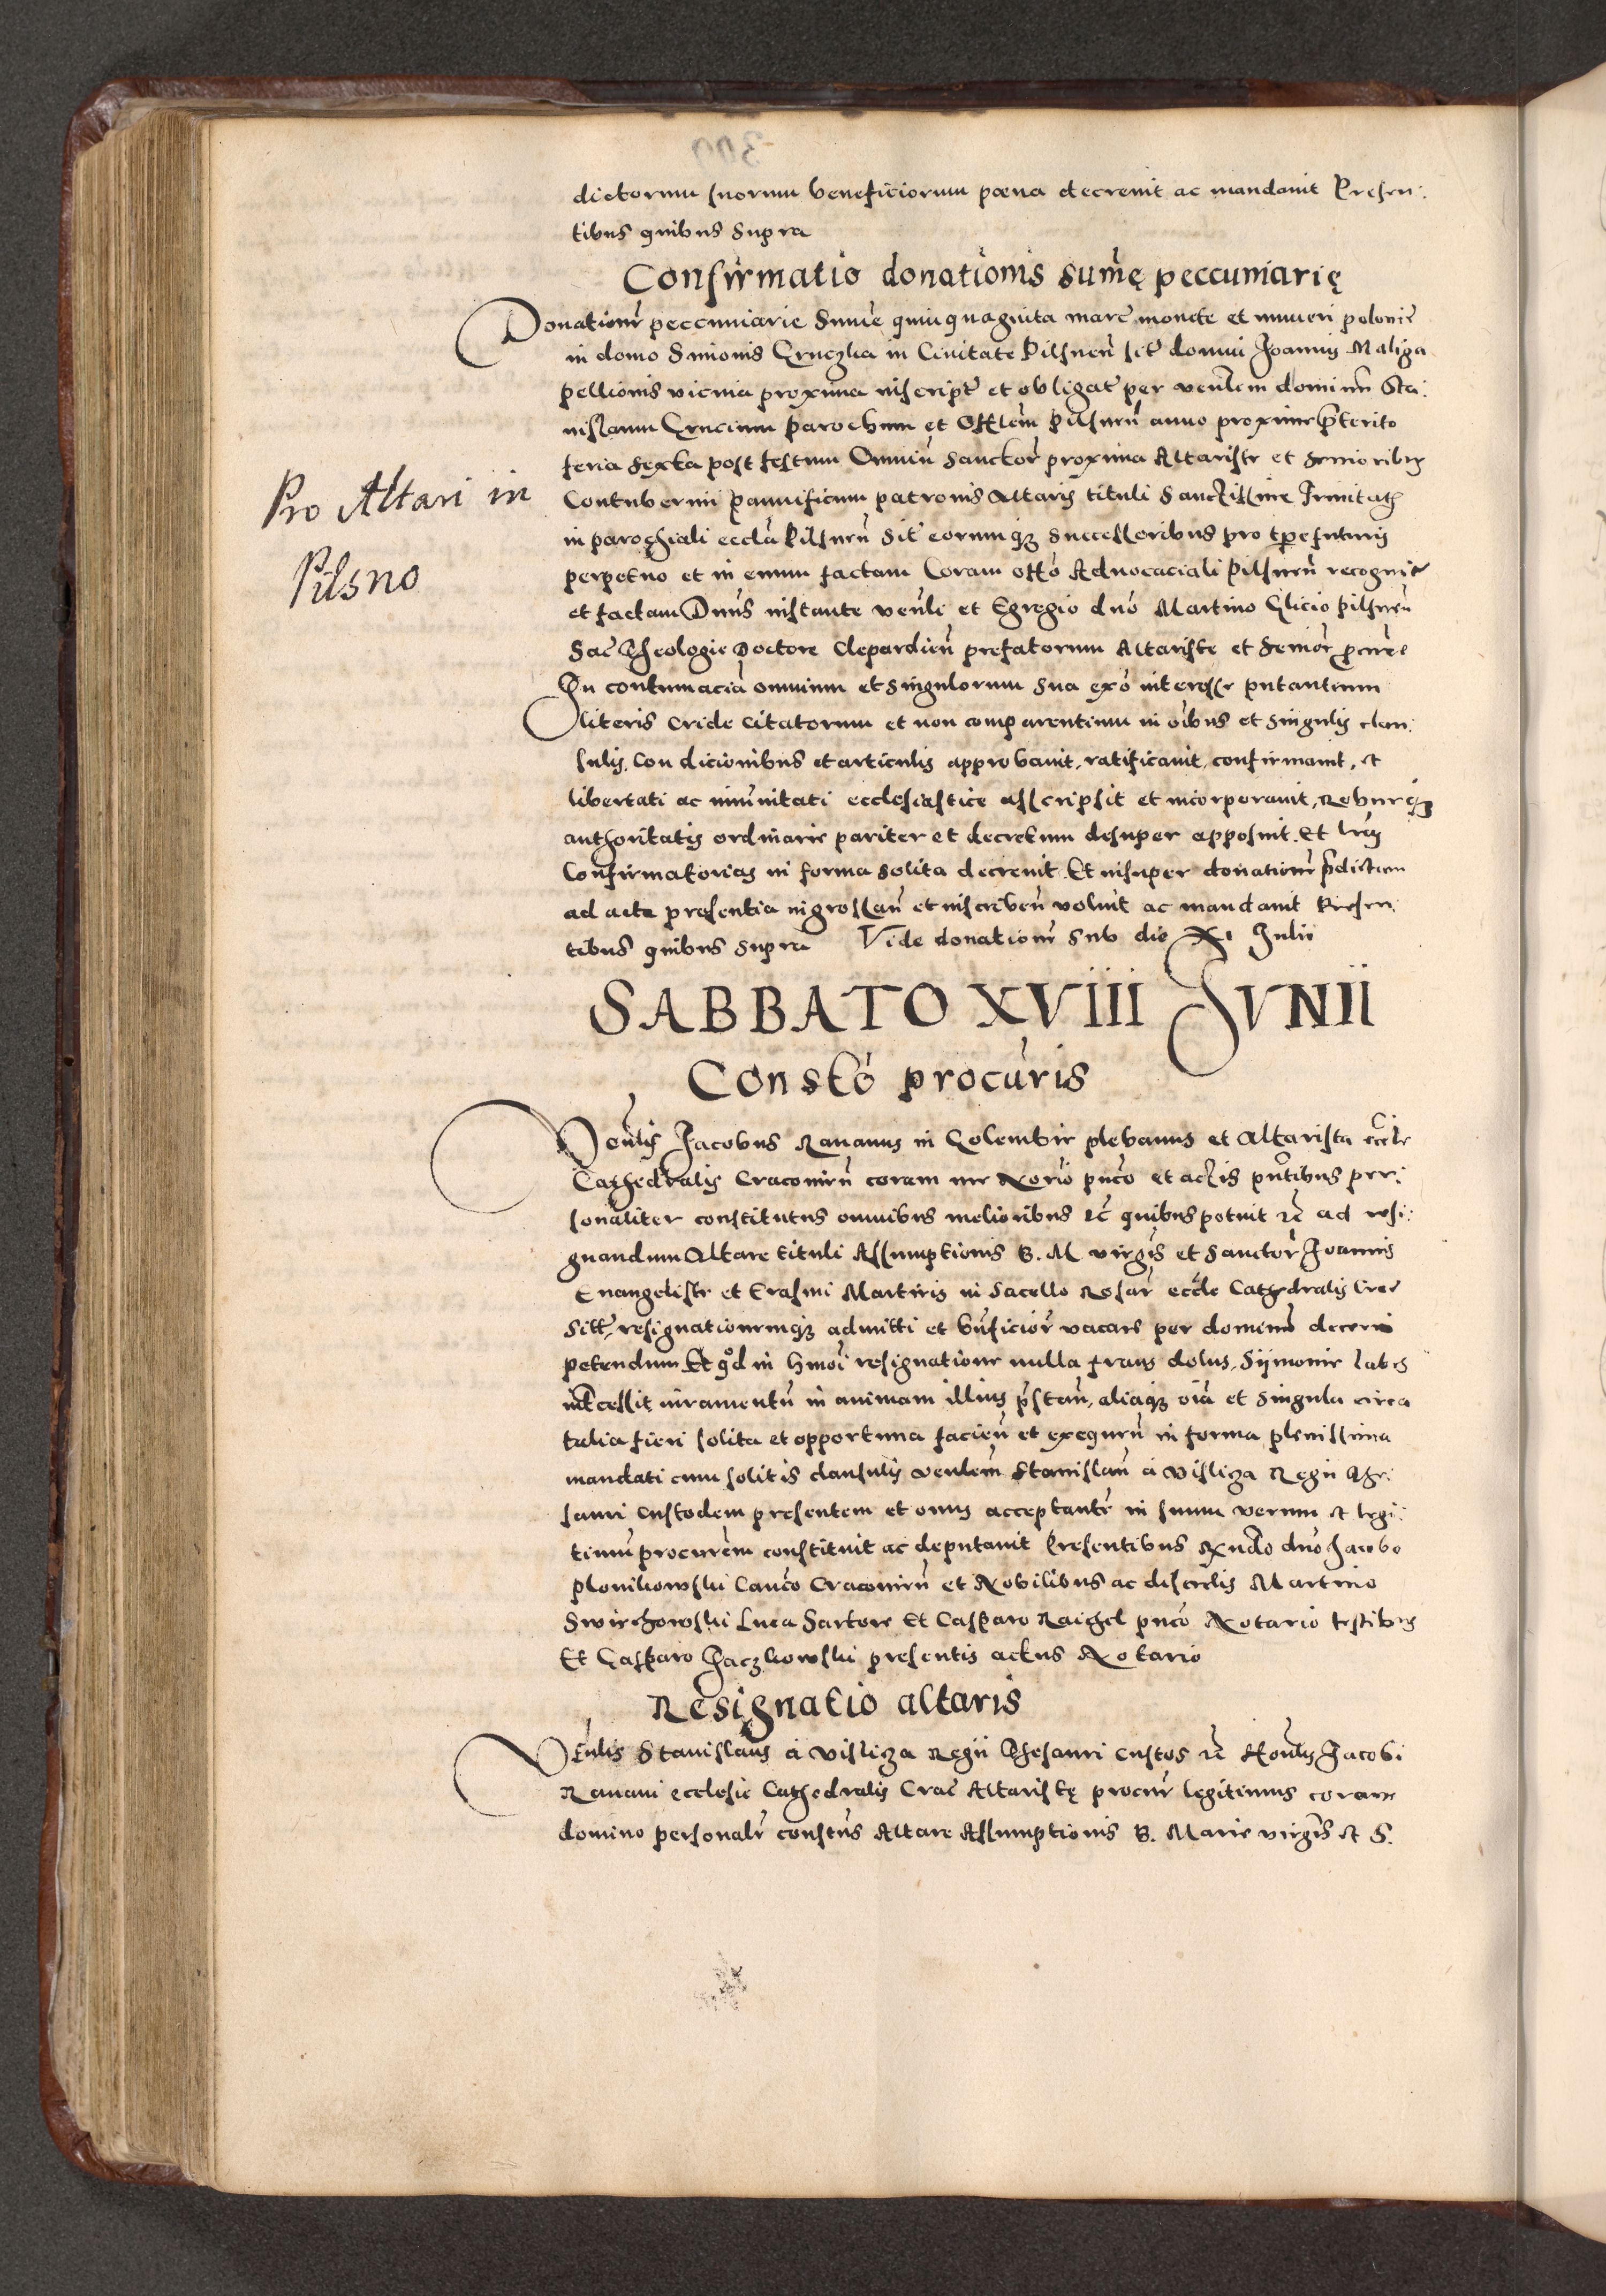 dictorum suorum beneficiorum pœna decrevit ac mandavit Presen:
tibus quibus supra
Confirmatio donationis sum̃ę peccuniarię
Donationẽ peccuniarie Sum̃e quinquaginta marc̃ monete et numeri polonic̃
in domo Simonis in Civitate Pilsneñ sit̃ domui Joannis Maliga
pellionis vicina proxima inscript̃ et obligat̃ per veñlem dominũ Sta:
nislaum parochum et Offlem Pilsneñ anno proxime p̃terito
feria sexta post festum Omniũ Sanctor̃ proxima Altariste et senioribus
Pro Altari in
Pilsno
Contubernii pannificum patronis Altaris tituli Sanctissime Trinitatis
in parochiali eccl̃a Pilsneñ sit̃ eorumq; successoribus pro tp̃e futuris
perpetuo et in evum factam Coram offo Advocaciali Pilsneñ recognit̃
et factam Dñus instante veñli et Egregio dño Martino Glicio Pilsneñ
Sac̃ Theologie Doctore Clepardieñ prefatorum Altariste et senior̃ procur̃e
In contumaciã omnium et singulorum sua exõ interesse putantium
literis cride citatorum et non comparentium in oĩbus et singulis clau:
sulis, condicionibus et articulis approbavit, ratificavit, confirmavit, et
libertati ac im̃unitati ecclesiastice asscripsit et incorporavit, Roburq;
authoritatis ordinarie pariter et decretum desuper apposuit. Et lr̃as
Confirmatorias in forma solita decrevit. Et insuper donationẽ p̃dictam
ad acta presentia ingrossañ et inscribeñ voluit ac mandavit Presen:
tibus quibus supra Vide donationẽ sub die XI Julii
SABBATO XVIII JVNII
Constõ procuris
Veñlis Jacobus Ravanus in Golembie plebanus et Altarista eccle
Cathedralis Cracovieñ coram me Norio puco et actis pñtibus per:
sonaliter constitutus omnibus melioribus ec̃ quibus potuit ec̃ ad resi:
gnandum Altare tituli Assumptionis B. M. virgis et Sanctor̃ Joannis
Evangeliste et Erasmi Martiris in Sacello Rosar̃ eccle Cathedralis Crac̃
Sitt̃, resignationemq; admitti et bñficior̃ vacare per dominũ decerni
petendum Et qd in hmoi resignatione nulla fraus dolus, Sijmonie labes
int̃cessit iuramentũ in animam illius p̃stañ, aliaq; oĩa et singula circa
talia fieri solita et opportuna facieñ et exequeñ in forma plenissima
mandati cum solitis clausulis veñlem Stanislaũ á Vislicza Regii The:
sauri Custodem presentem et onus acceptantẽ in suum verum et legi:
timũ procur̃em constituit ac deputavit Presentibus Rndo dño Jacobo
Plonikowski Canco Cracovieñ et Nobilibus ac discretis Martino
Swirchowski Luca Sartore Et Casparo Raigel puco Notario testibus
Et Gasparo Jaczkowski presentis actus Notario
Resignatio altaris
Veñlis Stanislaus á Vislicza Regii Thesauri custos ec̃ Hoñlis Jacobi
Ravani ecclesie Cathedralis Crac̃ Altaristę procur̃ legitimus coram
domino personalr̃ constus Altare Assumptionis B. Marie virgis et S.